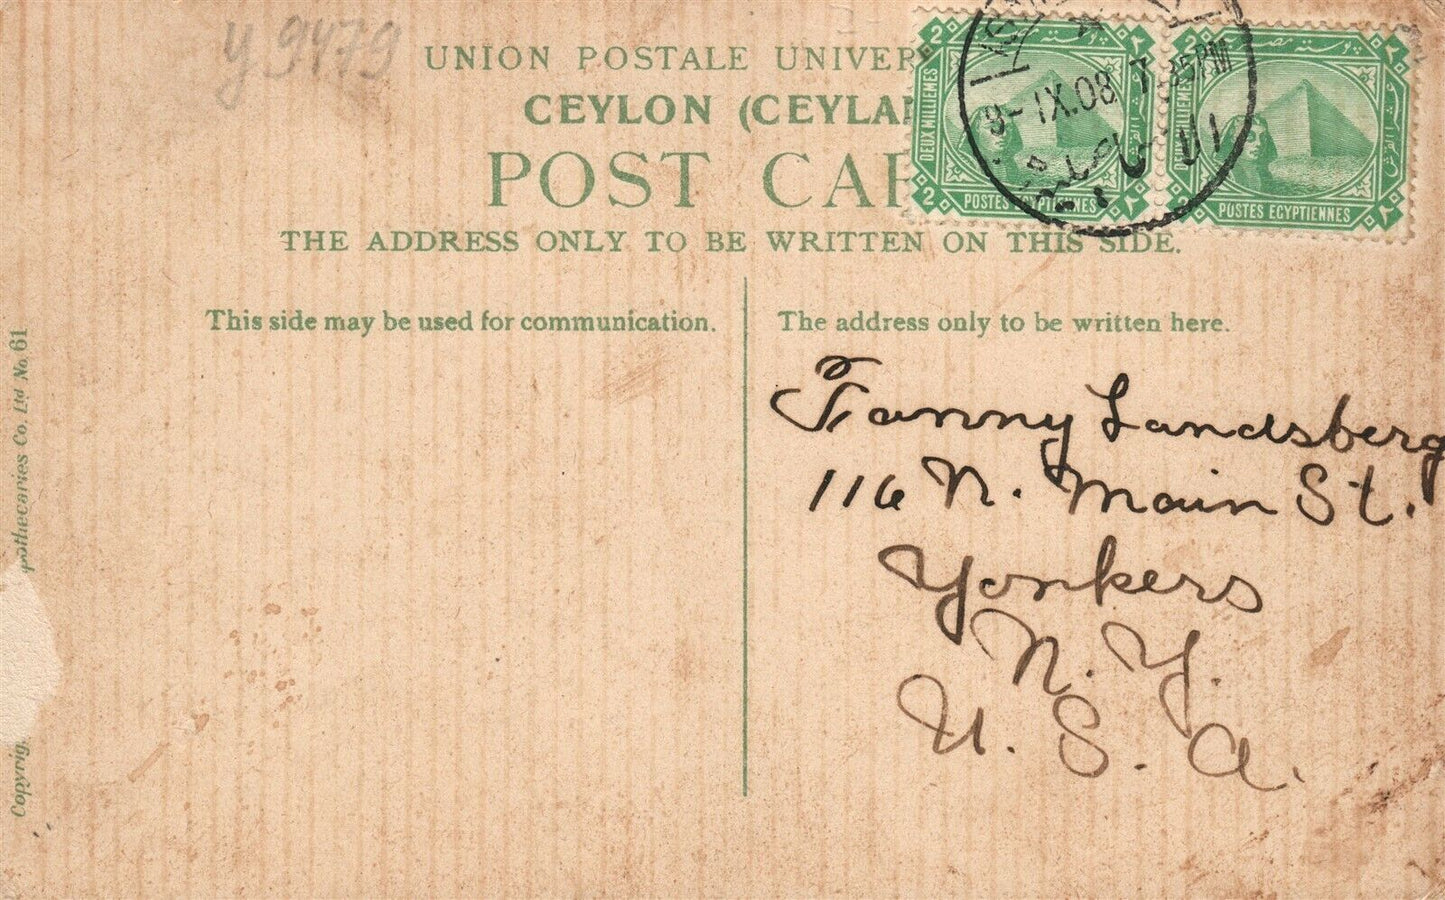 y 9479
UNION POSTALE UNIVER
CEYLON (CEYLAN
POST CAR
THE ADDRESS ONLY TO BE WRITTEN ON THIS SIDE.
2 بوستة مصرية ٢
DEUX MILLIEMES
POSTES EGYPTIENNES
2 ٢
2 بوستة مصرية ٢
DEUX MILLIEMES
POSTES EGYPTIENNES
2 ٢
9-IX.08 7.35PM
This side may be used for communication.
The address only to be written here.
Fanny Landsberg
116 N. Main St.
Yonkers
N. Y.
U. S. A.
Copyrig
pothecaries Co. Ltd No. 61